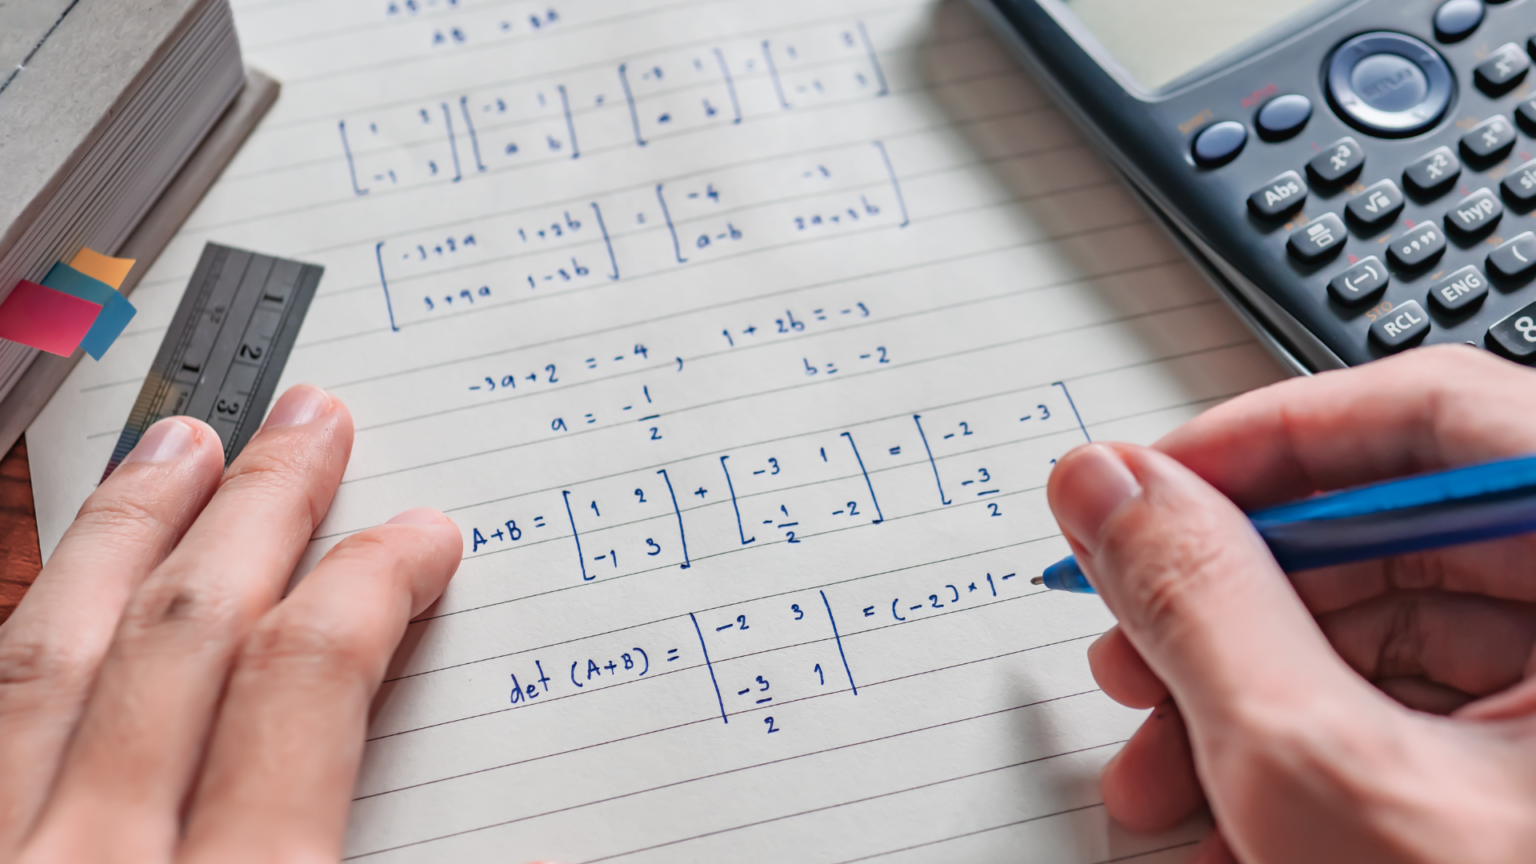 AB = BA
[1 2; -1 3] [-3 1; a b] = [-3 1; a b] - [1 2; -1 3]
[-3+2a 1+2b; 3+9a 1-3b] = [-4 -3; a-b 2a+3b]
-3a+2 = -4 , 1 + 2b = -3
a = -1/2 b = -2
A+B = [1 2; -1 3] + [-3 1; -1/2 -2] = [-2 -3; -3/2
det (A+B) = |-2 3; -3/2 1| = (-2) × 1 -
Abs x³ √ x² hyp
(-) °,,, (
RCL ENG 8
STO
1 2 3
1